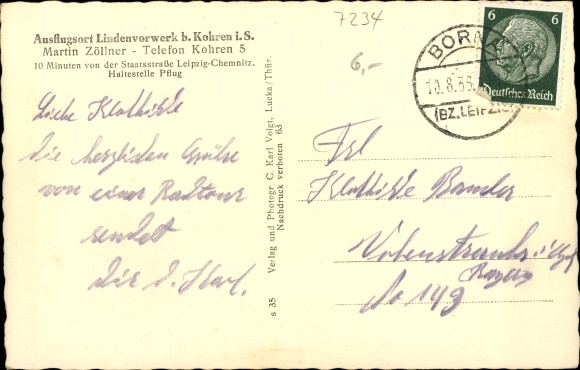 7234
6,-
Ausflugsort Lindenvorwerk b. Kohren i. S.
Martin Zöllner - Telefon Kohren 5
10 Minuten von der Staatsstraße Leipzig-Chemnitz.
Haltestelle Pflug
Liebe Klothilde
die herzlichen Grüße
von einer Radtour
sendet
dir d. Karl.
s 35 Verlag und Photogr. C. Karl Voigt, Lucka/Thür.
Nachdruck verboten 63
BORN
10.8.36
(BZ. LEIPZIG)
6 6
Deutsches Reich
Frl
Klothilde
Vohenstrauß
Bayern
No 149